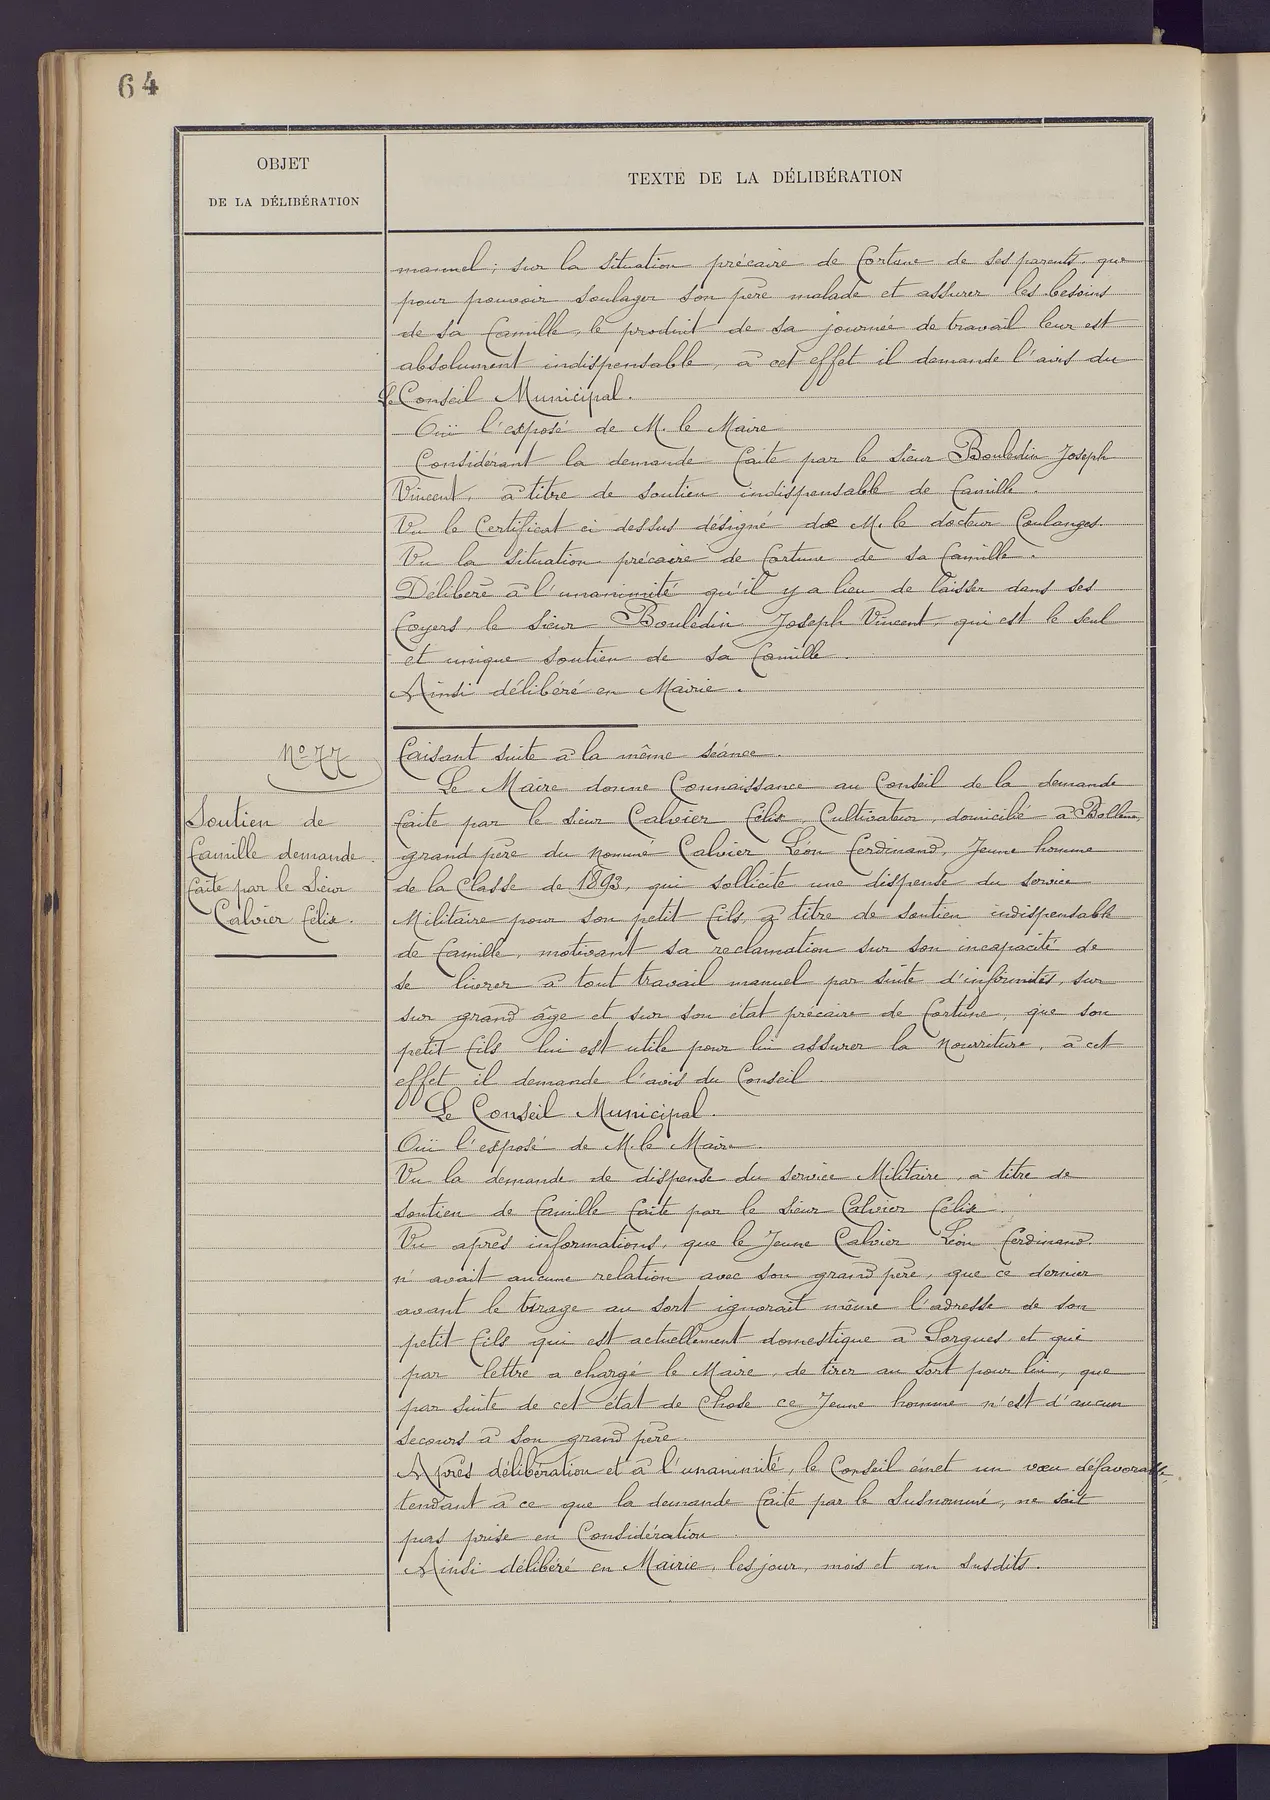 64
OBJET
DE LA DÉLIBÉRATION
TEXTE DE LA DÉLIBÉRATION
manuel ; sur la situation précaire de fortune de ses parents, que
pour pouvoir soulager son père malade et assurer les besoins
de sa famille, le produit de sa journée de travail leur est
absolument indispensable, à cet effet il demande l'avis du
Le Conseil Municipal.
Ouï l'exposé de M. le Maire
Considérant la demande faite par le sieur Bouledin Joseph
Vincent, à titre de soutien indispensable de famille.
Vu le Certificat ci dessus désigné de M. le docteur Coulanges
Vu la situation précaire de fortune de sa famille.
Délibère à l'unanimité qu'il y a lieu de laisser dans ses
foyers, le sieur Bouledin Joseph Vincent, qui est le seul
et unique soutien de sa famille.
Ainsi délibéré en Mairie.
No 77
Soutien de
famille demande
faite par le Sieur
Calvier Félix.
Faisant suite à la même séance.
Le Maire donne Connaissance au Conseil de la demande
faite par le sieur Calvier Félix, Cultivateur, domicilié à Bollène,
grand père du nommé Calvier Léon Ferdinand, Jeune homme
de la Classe de 1893, qui sollicite une dispense du service
Militaire pour son petit fils, à titre de soutien indispensable
de famille, motivant sa reclamation sur son incapacité de
se livrer à tout travail manuel par suite d'infirmités, sur
sur grand âge et sur son état précaire de fortune, que son
petit fils lui est utile pour lui assurer la nourriture, à cet
effet il demande l'avis du Conseil.
Le Conseil Municipal.
Ouï l'exposé de M. le Maire.
Vu la demande de dispense du service Militaire, à titre de
soutien de famille faite par le sieur Calvier Félix.
Vu après informations, que le Jeune Calvier Léon Ferdinand
n'avait aucune relation avec son grand père, que ce dernier
avant le tirage au sort ignorait même l'adresse de son
petit fils qui est actuellement domestique à Sorgues et qui
par lettre a chargé le Maire, de tirer au sort pour lui, que
par suite de cet état de Chose ce Jeune homme n'est d'aucun
secours à son grand père.
Après délibération et à l'unanimité, le Conseil émet un vœu défavorable
tendant à ce que la demande faite par le Susnommé, ne soit
pas prise en Considération.
Ainsi délibéré en Mairie, les jour, mois et an susdits.